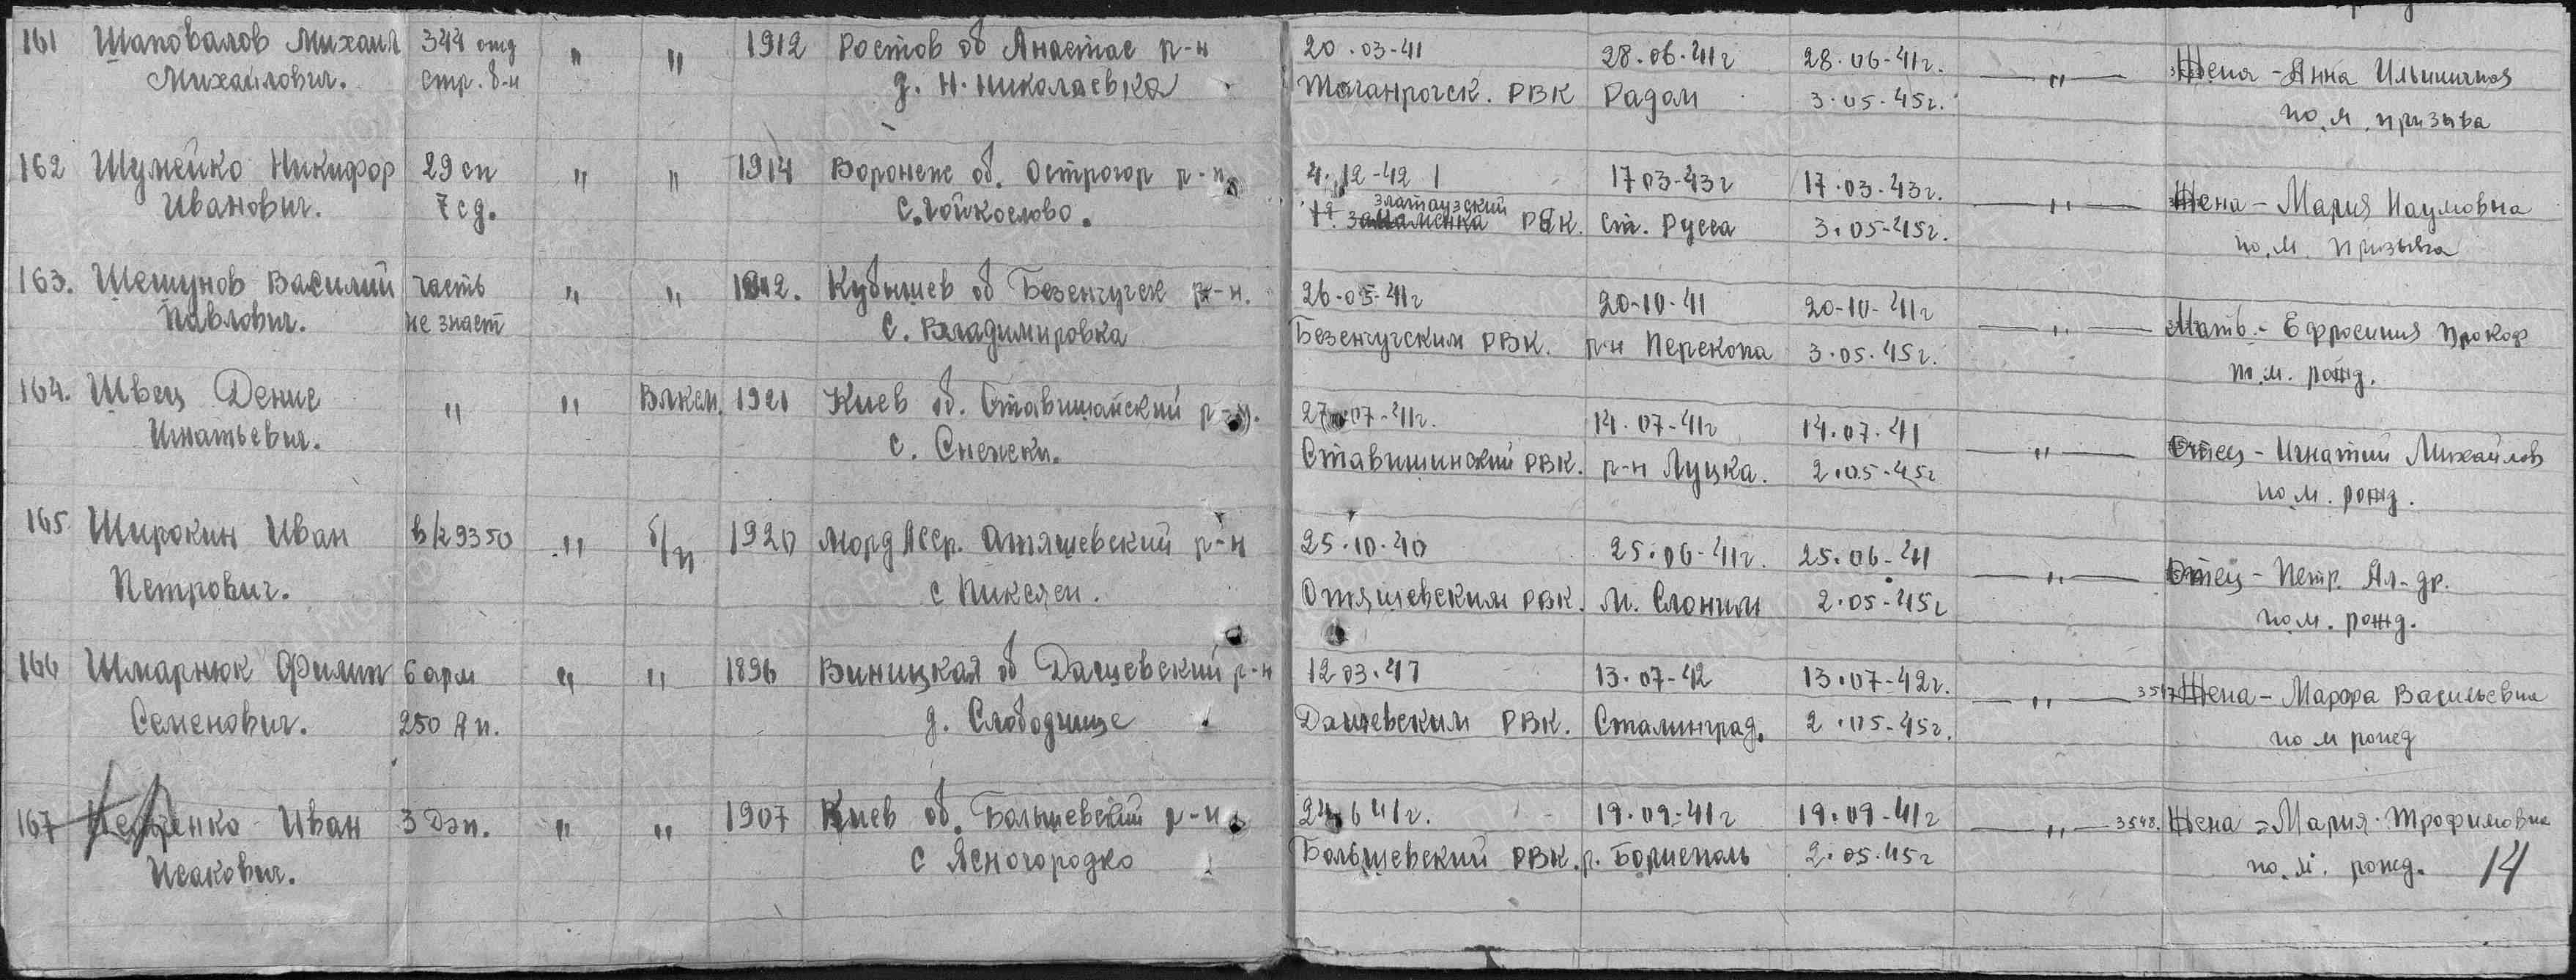 161 Шаповалов Михаил 344 отд " " 1912 Ростов об Анастас р-н 20.03-41 28.06.41г 28.06-41г. — " — Жена - Анна Ильинична
Михайлович. стр. б-н д. Н. Николаевка Таганрогск. РВК Радом 3.05.45г. по м. призыва
162 Шумейко Никифор 29 сп " " 1914 Воронеж об. Острогор р-н 4.12-42 17 03-43г 17.03.43г. — " — Жена - Мария Наумовна
Иванович. 7 сд. с. Гойкослово. златоузский РВК. Ст. Русса 3.05-45г. по. м. призыва
163. Шешунов Василий часть " " 1912. Кубышев об Безенчугск р-н. 26.05-41г 20-10-41 20-10-41г — " — Мать - Ефросиния Прокоф
Павлович. не знает с. Владимировка Безенчугским РВК. р-н Перекопа 3.05.45г. по. м. рожд.
164. Швец Денис " " Влксм. 1921 Киев об. Ставищанский р-н. 27.07-41г. 14.07-41г 14.07.41 — " — Отец - Игнатий Михайлов
Игнатьевич. с. Снежки. Ставищинский РВК. р-н Луцка. 2.05-45г по м. рожд.
165 Широкин Иван в/к 9350 " б/п 1920 Морд АССР. Атяшевский р-н 25.10.40 25.06-41г. 25.06-41 — " — Отец - Петр. Ал-др.
Петрович. с Пиксяси. Отяшевским РВК. м. Слоним 2.05-45г по м. рожд.
166 Шмарнюк Филип 6 арм " " 1896 Виницкая об Дашевский р-н 12 03.41 13.07-42 13.07-42г. — " — Жена - Марфа Васильевна
Семенович. 250 АП. д. Слободище Дашевским РВК. Сталинград. 2.05-45г. по м рожд
167 Иван 3 Дэп. " " 1907 Киев об. Большевский р-н 24.6 41г. 19.09-41г 19.09-41г — " — 3548. Жена - Мария Трофимовна
Исакович. с Ясногородко Большевский РВК. г. Борисполь 2.05.45г по. м. рожд. 14